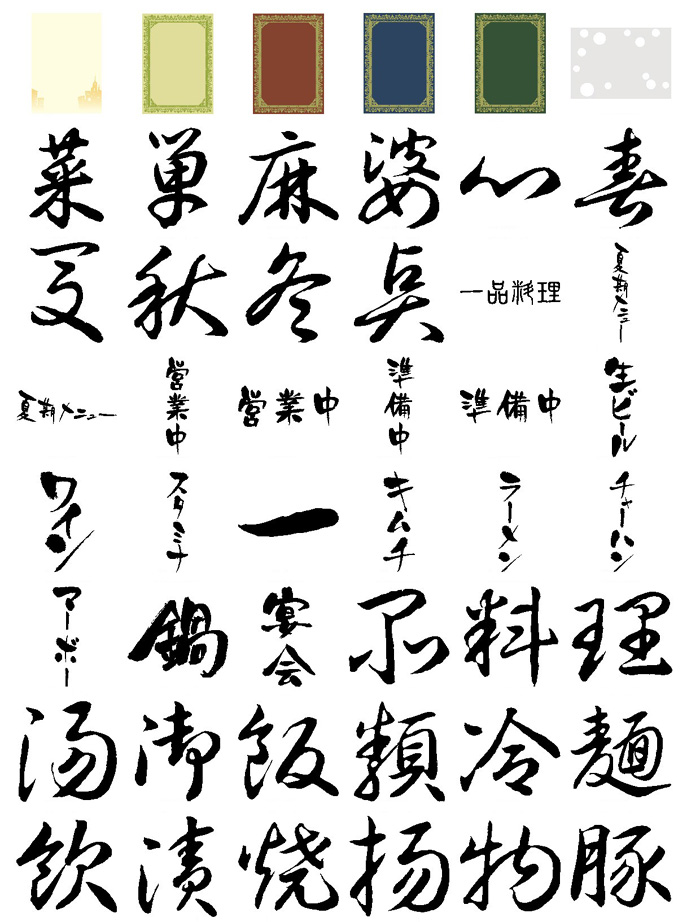 菜 単 麻 婆 心 春
夏 秋 冬 点 一品料理 夏期メニュー
夏期メニュー 営業中 営業中 準備中 準備中 生ビール
ワイン スタミナ 一 キムチ ラーメン チャーハン
マーボー 鍋 宴会 品 料 理
湯 御 飯 類 冷 麺
飲 漬 焼 揚 物 豚